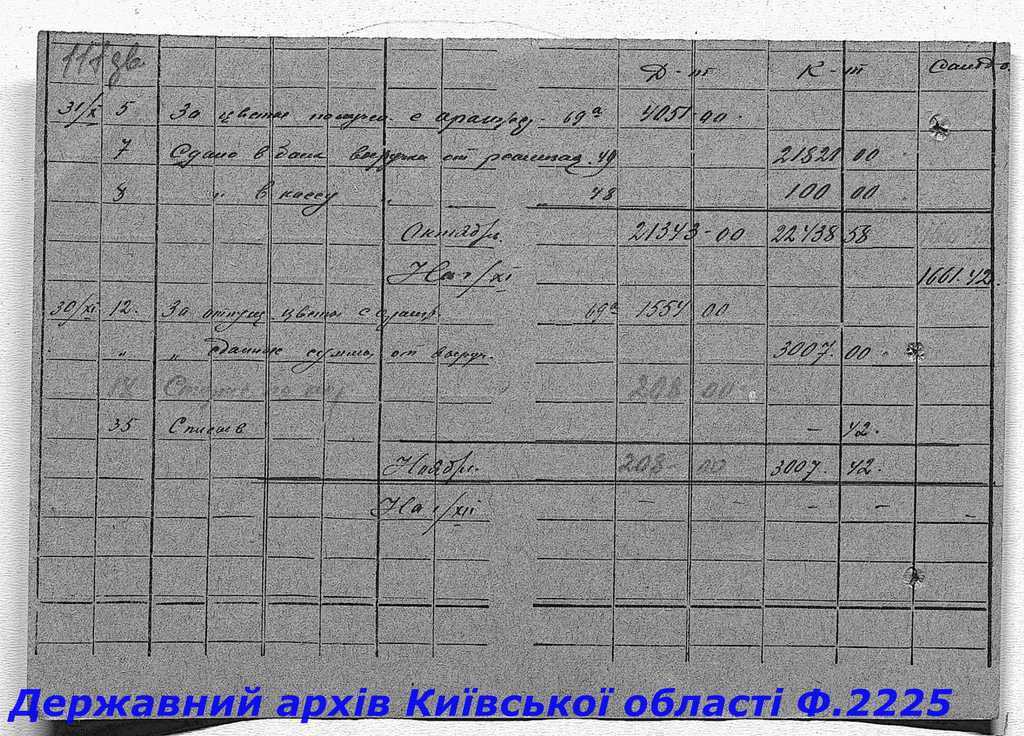 Д-т К-т Сальдо
31/X 5 За цветы получ. с оранж. 69а 4051-00
7 Сдано в банк выручки от реализац. 49 21821 00
8 " в кассу " 48 100 00
Октябрь 21343-00 22438 58
На 1/XI 1661.42
30/XI 12. За отпущ цветы с оранж. 69а 1554 00
" " сданные суммы от выруч. 3007. 00
208 00
35 Списан в - 42
Ноябрь 208- 00 3007. 42
На 1/XII - - - -
Державний архів Київської області Ф.2225